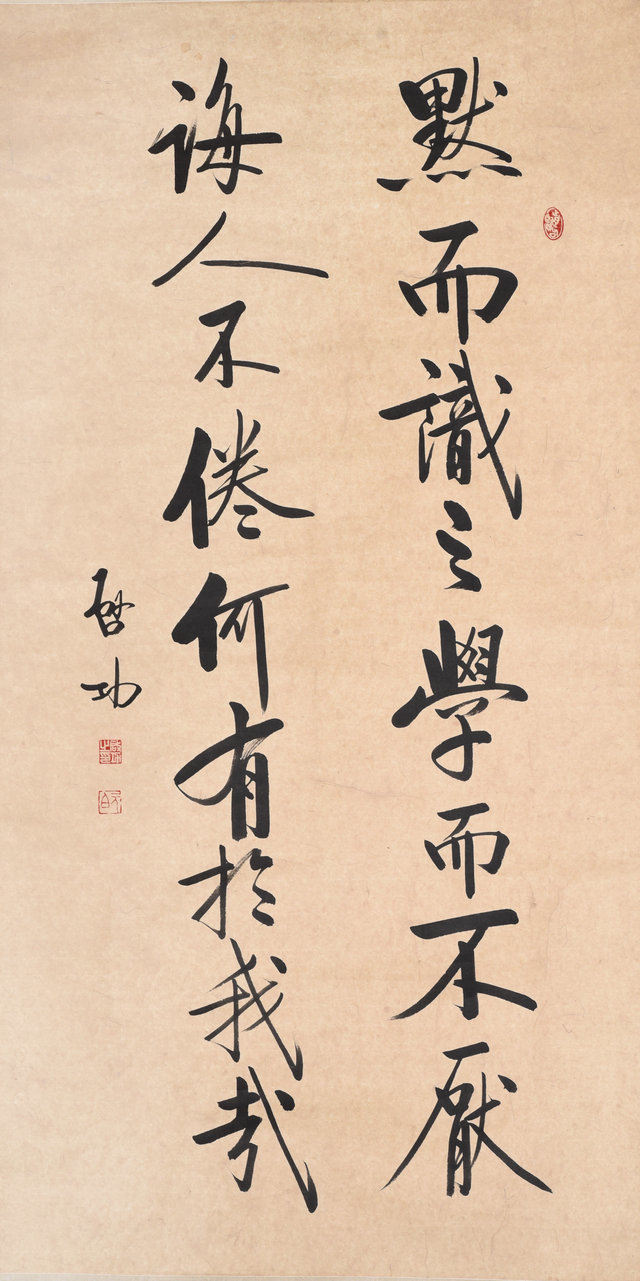 默而識之學而不厭
誨人不倦何有於我哉
啓功